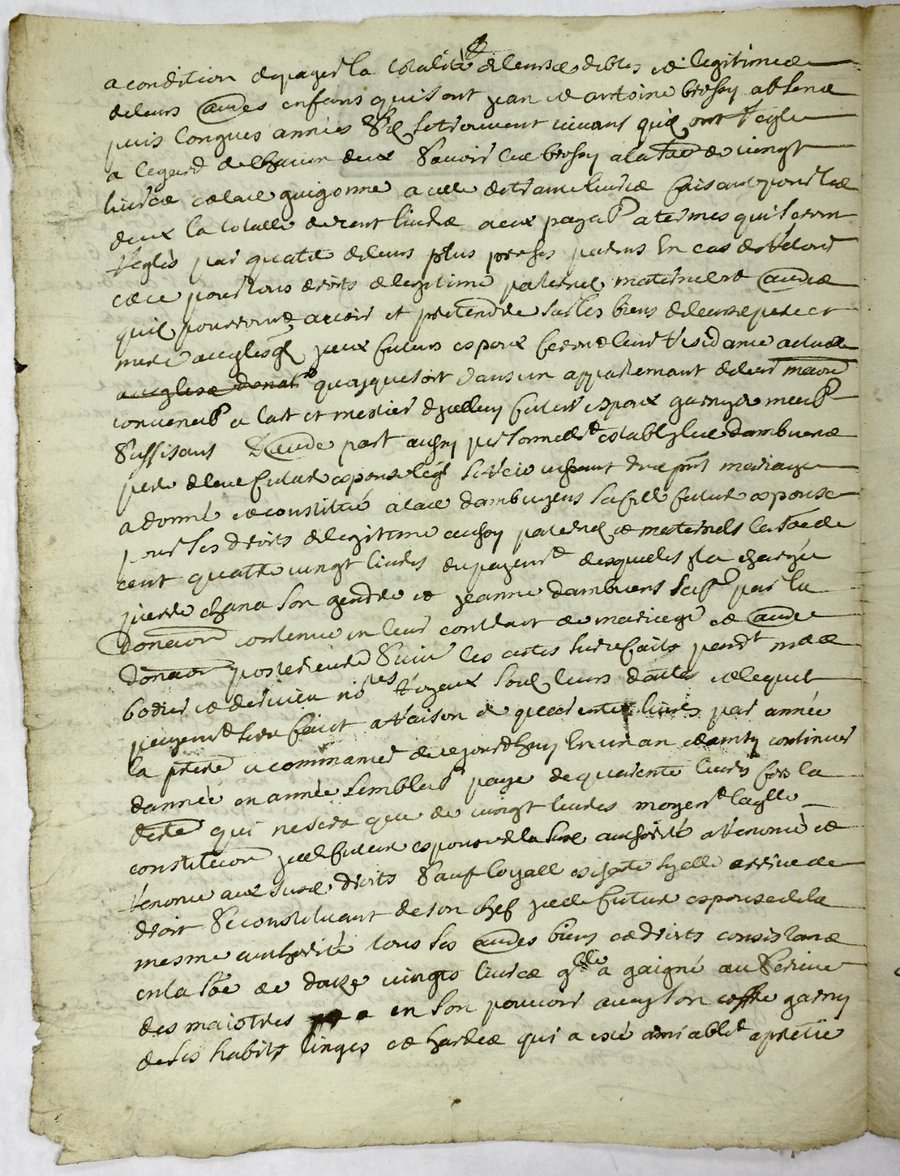 a condition de payer la totalité de leurs debtes et legitimes
de leurs autres enfans qui sont jean et antoine brossy absens
puis longues années s'ils se treuvent vivans qui ont reglé
a legard de chacun deux savoir led brossy a la so͞e de vingt
livres et lad guigonne a celle de trante livres faisant pour les
deux la totalle de cent livres a eux payab͞ a termes qui seront
reglés par quatre de leurs plus proches parens En cas de retour
et ce pour tous droits de legitime paternel maternel et autres
quils pourront avoir et pretendre sur les biens de leurs pere et
mere auxquels jceux futurs espoux feront leur residance actuelle
quoyque soit dans un appartemant de leur maison
convenab a lart et mestier dud futur espoux garny de meub
suffisans D'autre part aussy personnellemt estably led dambuens
pere de lad futur espouse leql de rechef en faveur du pnt mariage
a donné et constitué a lad dambuyens sa fille futur espouse
pour ses droits de legitime aussy paternel et maternels la so͞e de
cent quatre vingt livres du payemt desquelles il a chargé
pierre chana son gendre et jeanne dambuens sa f par la
donation contenue en leur contract de mariage et autre
donation posterieure suivt les actes sur ce faits pendt mes
bodier et dervieu nores royaux soub leurs dattes et lequel
payemt sera faict a raison de quarente livres par année
la pre͞re a commancer de cejourdhuy En un an et ainsy continuer
dannée en année semblab paye de quarente livres fors la
dere qui ne sera que de vingt livres moyent laqlle
constitution jcelle futur espouse de la sus authorité a renoncé et
renonce aux susd droits sauf loyalle escheute sy elle arrive de
droit Se constituant de son chef jcelle futur espouse de la
mesme authorité tous ses autres biens et droits consistans
en la so͞e de douze vingts livres qlle a gaigné au service
des maistres en son pouvoir avec son coffre garny
de ses habits linges et hardes qui a esté amiablet apretié